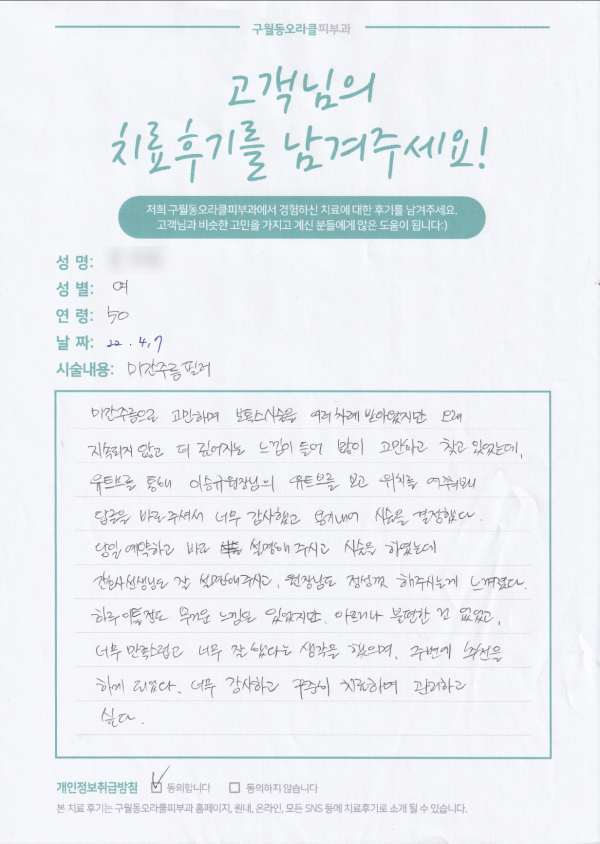 구월동오라클피부과
고객님의
치료후기를 남겨주세요!
저희 구월동오라클피부과에서 경험하신 치료에 대한 후기를 남겨주세요.
고객님과 비슷한 고민을 가지고 계신 분들에게 많은 도움이 됩니다:)
성 명:
성 별: 여
연 령: 50
날 짜: 22. 4. 7
시술내용: 미간주름 필러
미간주름으로 고민하며 보톡스시술을 여러차례 받아왔지만 오래
지속되지 않고 더 깊어지는 느낌이 들어 많이 고민하고 찾고 있었는데,
유튜브를 통해 이승규원장님의 유튜브를 보고 위치를 여쭤봤
답글을 바로 주셔서 너무 감사했고 용기내어 시술을 결정했다.
당일 예약하고 바로 설명해 주시고 시술을 하였는데
간호사선생님도 잘 설명해주시고, 원장님도 정성껏 해주시는게 느껴졌다.
하루 이틀정도 무거운 느낌은 있었지만, 아프거나 불편한 건 없었고,
너무 만족스럽고 너무 잘 했다는 생각을 했으며, 주변에 추천을
하게 되었다. 너무 감사하고 꾸준히 치료하며 관리하고
싶다.
개인정보취급방침 ☑ 동의합니다 ☐ 동의하지 않습니다
본 치료 후기는 구월동오라클피부과 홈페이지, 원내, 온라인, 모든 SNS 등에 치료후기로 소개 될 수 있습니다.